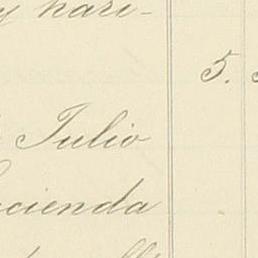 y hari-
5.
Julio
cienda